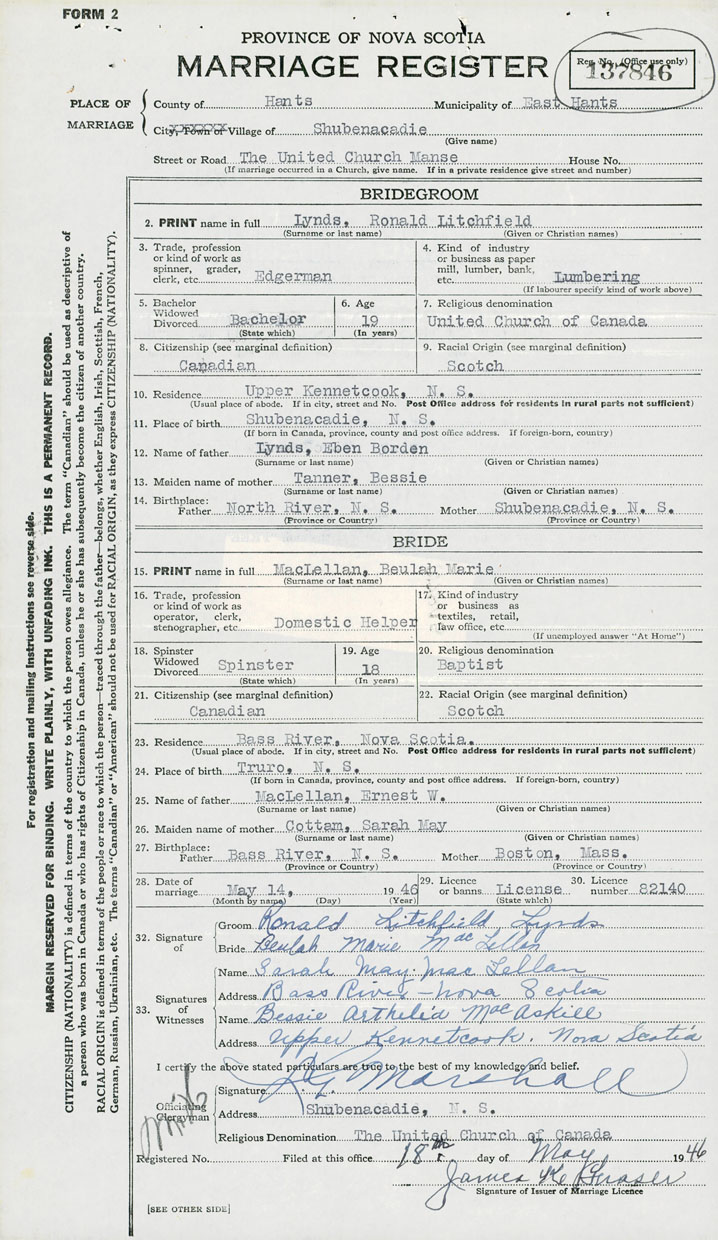 FORM 2
PROVINCE OF NOVA SCOTIA
MARRIAGE REGISTER
Reg. No. (Office use only)
137846
PLACE OF MARRIAGE
County of Hants Municipality of East Hants
City, Town or Village of Shubenacadie
(Give name)
Street or Road The United Church Manse House No.
(If marriage occurred in a Church, give name. If in a private residence give street and number)
BRIDEGROOM
2. PRINT name in full Lynds, Ronald Litchfield
(Surname or last name) (Given or Christian names)
3. Trade, profession or kind of work as spinner, grader, clerk, etc. Edgerman
4. Kind of industry or business as paper mill, lumber, bank, etc. Lumbering
(If labourer specify kind of work above)
5. Bachelor Widowed Divorced Bachelor
(State which)
6. Age 19
(In years)
7. Religious denomination
United Church of Canada
8. Citizenship (see marginal definition)
Canadian
9. Racial Origin (see marginal definition)
Scotch
10. Residence Upper Kennetcook, N. S.
(Usual place of abode. If in city, street and No. Post Office address for residents in rural parts not sufficient)
11. Place of birth Shubenacadie, N. S.
(If born in Canada, province, county and post office address. If foreign-born, country)
12. Name of father Lynds, Eben Borden
(Surname or last name) (Given or Christian names)
13. Maiden name of mother Tanner, Bessie
(Surname or last name) (Given or Christian names)
14. Birthplace: Father North River, N. S. Mother Shubenacadie, N. S.
(Province or Country) (Province or Country)
BRIDE
15. PRINT name in full MacLellan, Beulah Marie
(Surname or last name) (Given or Christian names)
16. Trade, profession or kind of work as operator, clerk, stenographer, etc. Domestic Helper
17. Kind of industry or business as textiles, retail, law office, etc.
(If unemployed answer "At Home")
18. Spinster Widowed Divorced Spinster
(State which)
19. Age 18
(In years)
20. Religious denomination
Baptist
21. Citizenship (see marginal definition)
Canadian
22. Racial Origin (see marginal definition)
Scotch
23. Residence Bass River, Nova Scotia.
(Usual place of abode. If in city, street and No. Post Office address for residents in rural parts not sufficient)
24. Place of birth Truro, N. S.
(If born in Canada, province, county and post office address. If foreign-born, country)
25. Name of father MacLellan, Ernest W.
(Surname or last name) (Given or Christian names)
26. Maiden name of mother Cottam, Sarah May
(Surname or last name) (Given or Christian names)
27. Birthplace: Father Bass River, N. S. Mother Boston, Mass.
(Province or Country) (Province or Country)
28. Date of marriage May 14, 1946
(Month by name) (Day) (Year)
29. Licence or banns License
(State which)
30. Licence number 82140
32. Signature of
Groom Ronald Litchfield Lynds
Bride Beulah Marie MacLellan
33. Signatures of Witnesses
Name Sarah May MacLellan
Address Bass River - Nova Scotia
Name Bessie Arthelia MacAskill
Address Upper Kennetcook, Nova Scotia
I certify the above stated particulars are true to the best of my knowledge and belief.
Officiating Clergyman
Signature Marshall
Address Shubenacadie, N. S.
Religious Denomination The United Church of Canada
Registered No. Filed at this office 18th day of May 1946
James
Signature of Issuer of Marriage Licence
[SEE OTHER SIDE]
For registration and mailing instructions see reverse side.
MARGIN RESERVED FOR BINDING. WRITE PLAINLY, WITH UNFADING INK. THIS IS A PERMANENT RECORD.
CITIZENSHIP (NATIONALITY) is defined in terms of the country to which the person owes allegiance. The term "Canadian" should be used as descriptive of
a person who was born in Canada or who has rights of Citizenship in Canada, unless he or she has subsequently become the citizen of another country.
RACIAL ORIGIN is defined in terms of the people or race to which the person—traced through the father—belongs, whether English, Irish, Scottish, French,
German, Russian, Ukrainian, etc. The terms "Canadian" or "American" should not be used for RACIAL ORIGIN, as they express CITIZENSHIP (NATIONALITY).